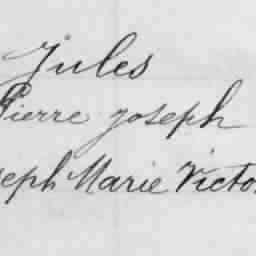 Jules
Pierre joseph
seph Marie Victo